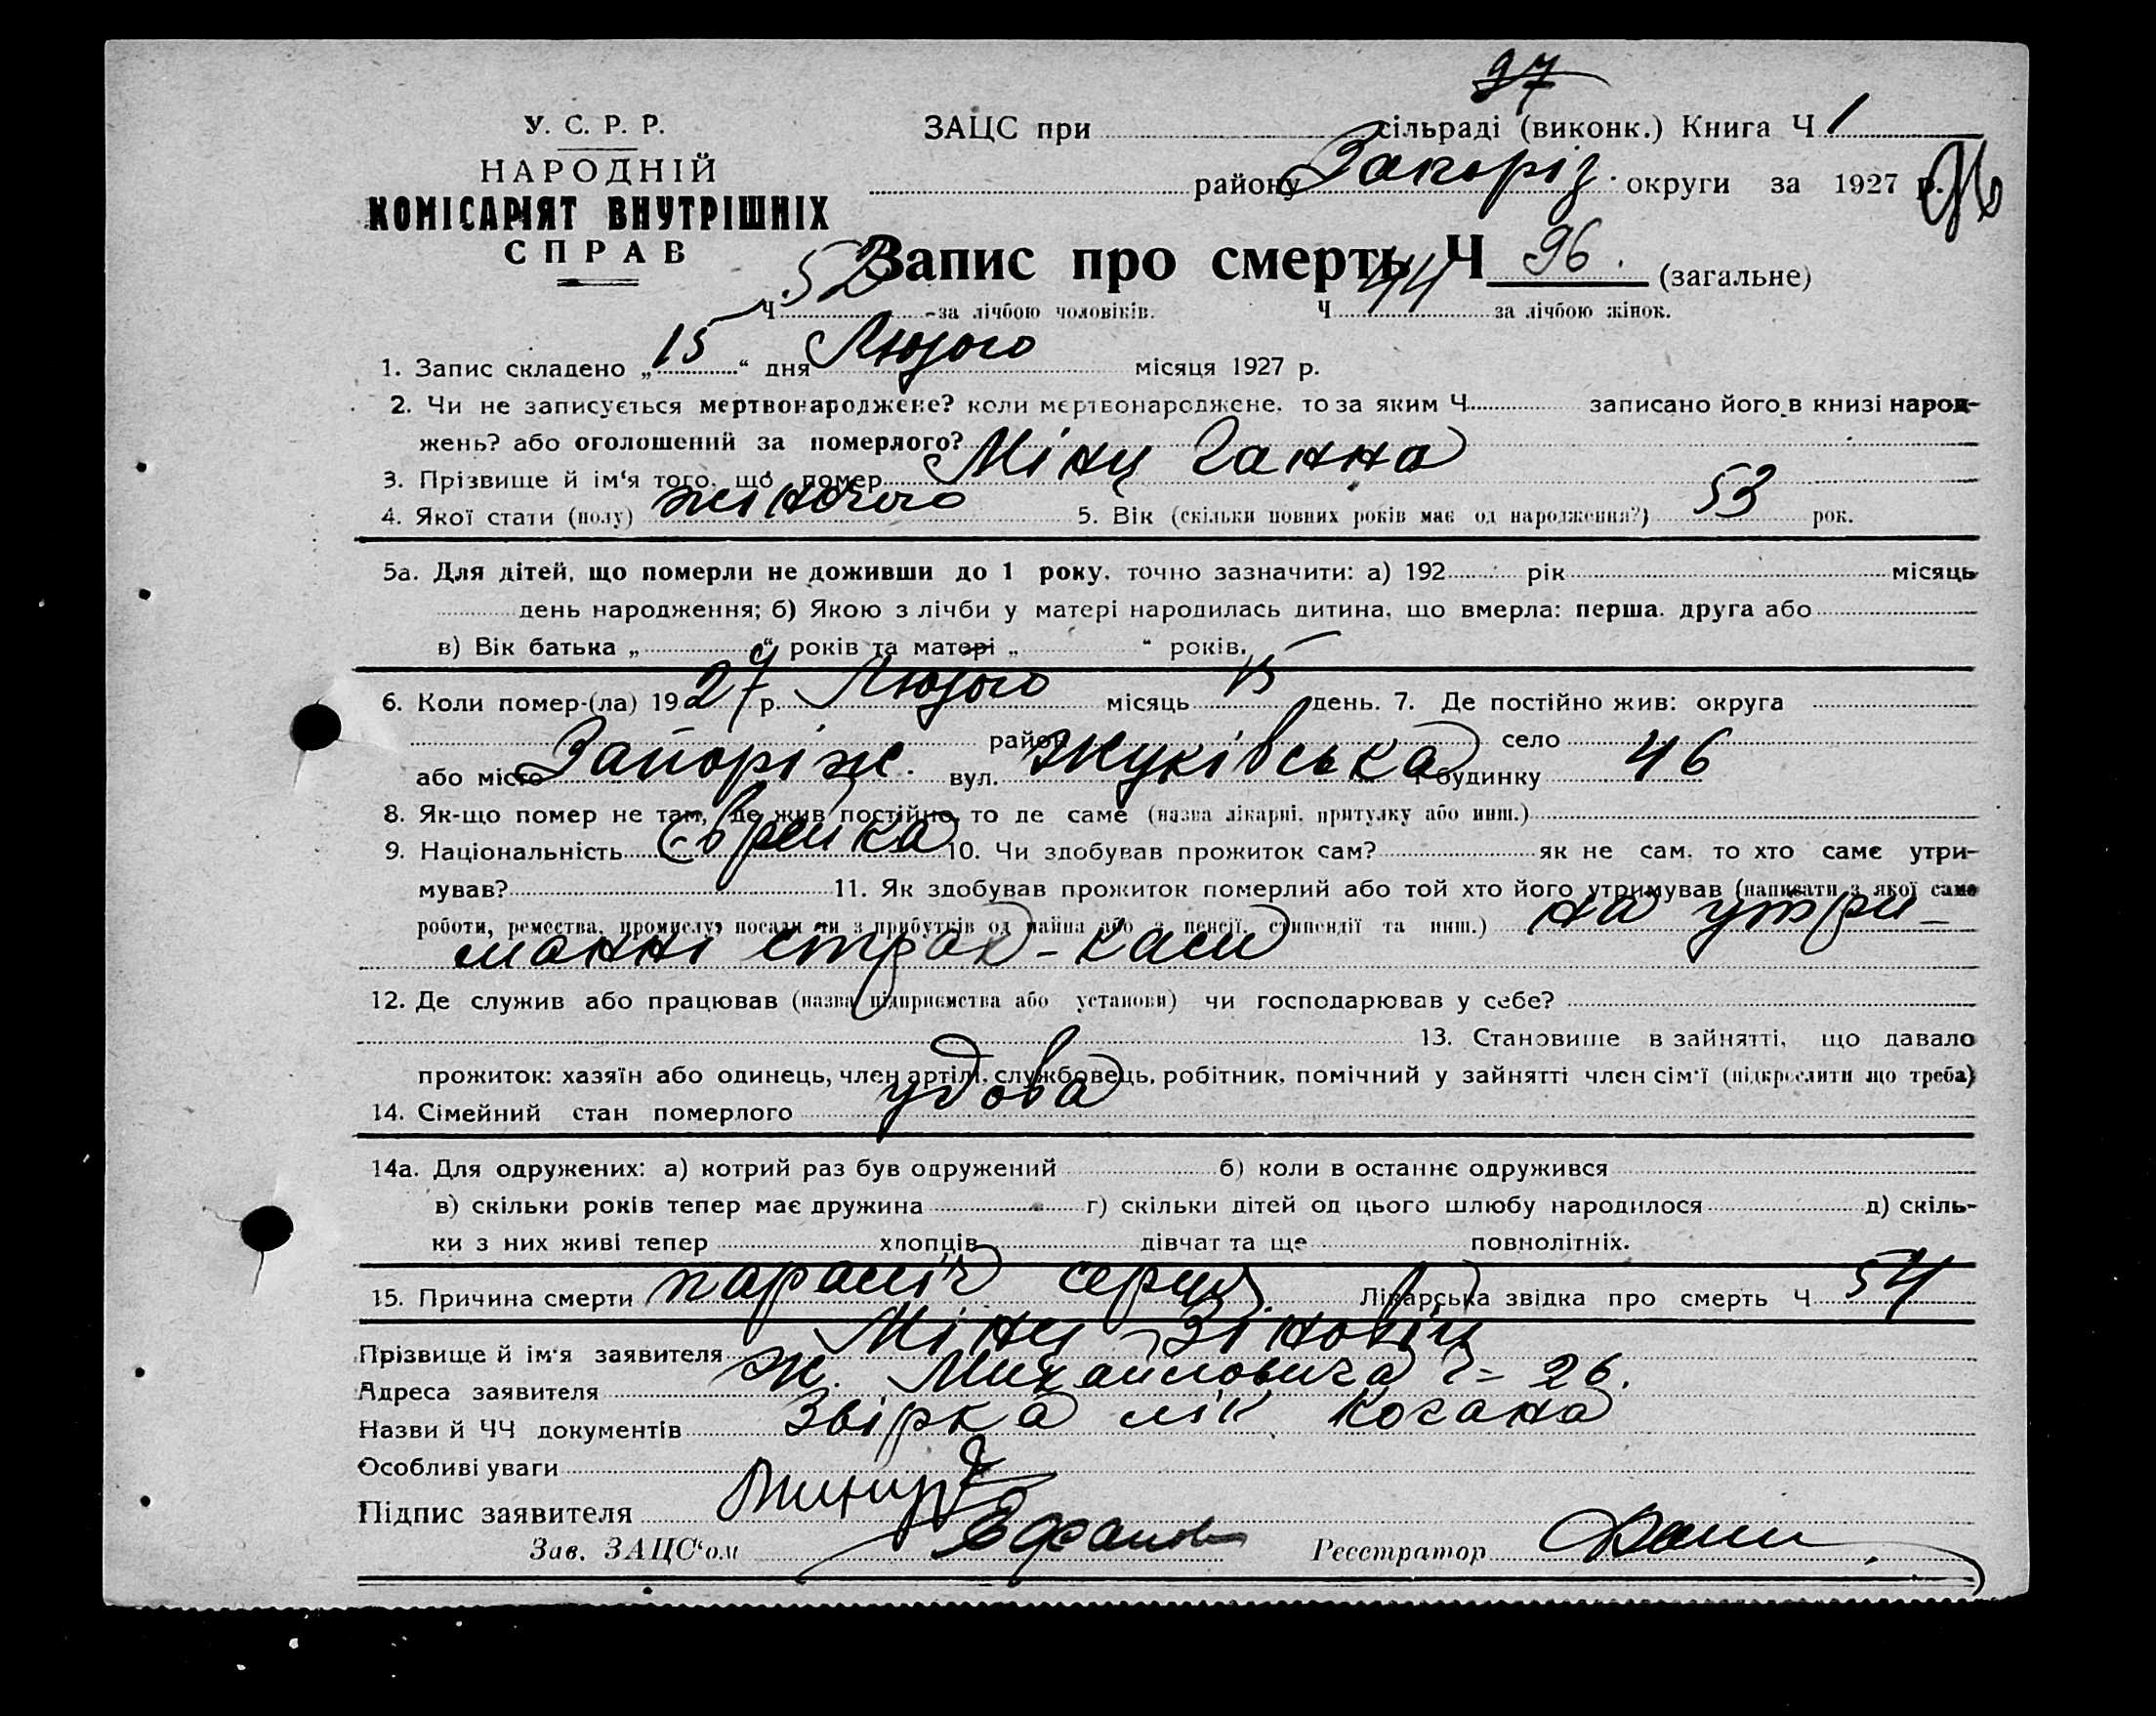 97
У. С. Р. Р.
ЗАЦС при сільраді (виконк.) Книга Ч 1
НАРОДНІЙ
району Запоріз. округи за 1927 р. 96
КОМІСАРІЯТ ВНУТРІШНІХ
СПРАВ
Запис про смерть Ч 96. (загальне)
Ч 52 -за лічбою чоловіків. Ч 44 за лічбою жінок.
1. Запис складено „ 15 “ дня Лютого місяця 1927 р.
2. Чи не записується мертвонароджене? коли мертвонароджене, то за яким Ч. записано його в книзі народ-
жень? або оголошений за померлого?
3. Прізвище й ім‘я того, що помер Мінц Ганна
4. Якої стати (полу) жіночого 5. Вік (скільки повних років має од народження?) 53 рок.
5а. Для дітей, що померли не доживши до 1 року, точно зазначити: а) 192 рік місяць
день народження; б) Якою з лічби у матері народилась дитина, що вмерла: перша, друга або
в) Вік батька „ “ років та матері „ “ років.
6. Коли помер-(ла) 1927 р. Лютого місяць 15 день. 7. Де постійно жив: округа
район село
або місто Запоріж. вул. Жуківська будинку 46
8. Як-що помер не там, де жив постійно, то де саме (назва лікарні, притулку або инш.)
9. Національність Єврейка 10. Чи здобував прожиток сам? як не сам, то хто саме утри-
мував? 11. Як здобував прожиток померлий або той хто його утримував (написати з якої само
роботи, ремества, промислу, посади чи з прибутків од майна або з пенсії, стипендії та инш.) на утри-
манні страх-каси
12. Де служив або працював (назва підприємства або установи) чи господарював у себе?
13. Становище в зайнятті, що давало
прожиток: хазяїн або одинець, член артілі, службовець, робітник, помічний у зайнятті член сім‘ї (підкреслити що треба)
14. Сімейний стан померлого удова
14а. Для одружених: а) котрий раз був одружений б) коли в останнє одружився
в) скільки років тепер має дружина г) скільки дітей од цього шлюбу народилося д) скіль-
ки з них живі тепер хлопців дівчат та ще повнолітніх.
15. Причина смерти параліч серця Лікарська звідка про смерть Ч 54
Прізвище й ім‘я заявителя Мінц Зіновій
Адреса заявителя ж. Михайловича 26.
Назви й ЧЧ документів лік Когана
Особливі уваги
Підпис заявителя
Зав. ЗАЦС‘ом
Реєстратор